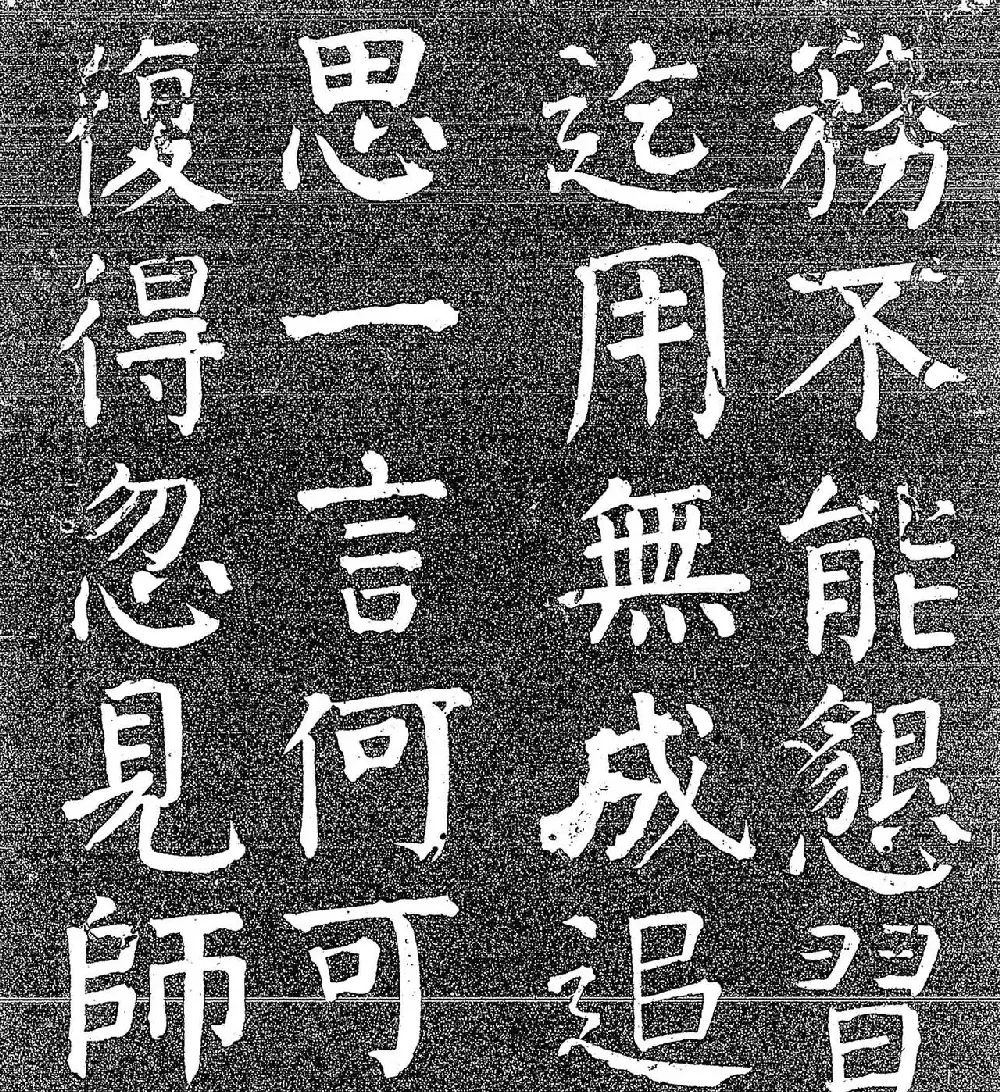 務不能懇習
迄用無成追
思一言何可
復得忽見師